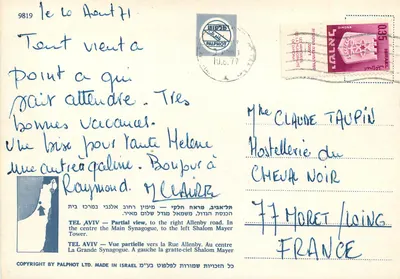 9819
le 10 Août 71
Tout vient à
point à qui
sait attendre. Très
bonnes vacances.
Une bise pour tante Hélène
une autre à
Bonjour à
Raymond. M CLAIRE
פלפוט
PALPHOT
ישראל
0.35
Mme CLAUDE TAUPIN
Hostellerie du
CHEVAL NOIR
77 MORET/LOING
FRANCE
TEL AVIV — Partial view, to the right Allenby road. In
the centre the Main Synagogue, to the left Shalom Mayer
Tower.
TEL AVIV — Vue partielle vers la Rue Allenby. Au centre
La Grande Synagogue. A gauche la grate-ciel Shalom Mayer
COPYRIGHT BY PALPHOT LTD. MADE IN ISRAEL כל הזכויות שמורות לפלפוט בע"מ